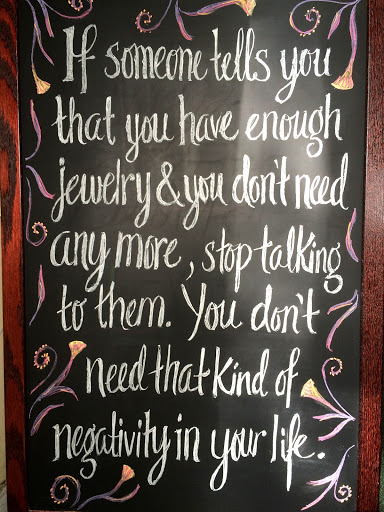 If someone tells you
that you have enough
jewelry & you don't need
any more, stop talking
to them. You don't
need that kind of
negativity in your life.